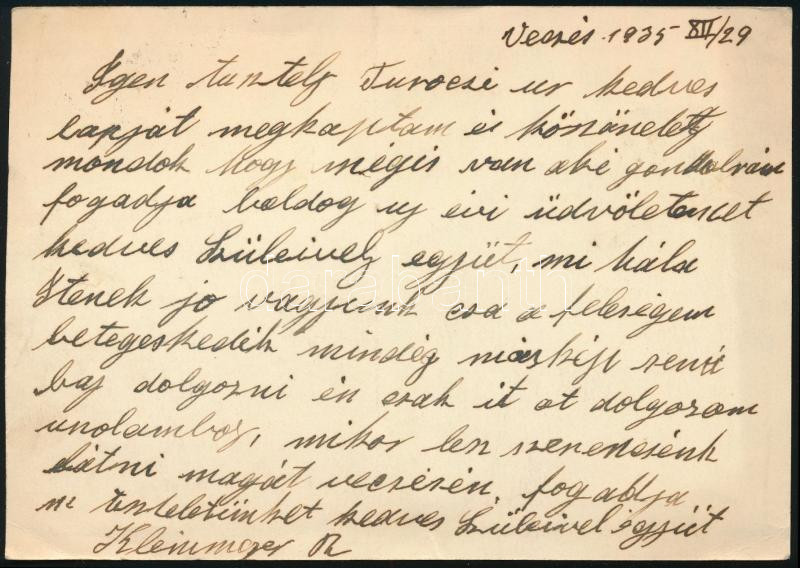 Vecsés 1935 XII/29
Igen tisztelt Turoczi ur kedves
lapját megkaptam és köszönetet
mondok hogy mégis van aki gondol rám
fogadja boldog uj évi üdvöletemet
kedves Szüleivel együt, mi hála
Itenek jo vagyunk csa a feleségem
betegeskedik mindég másképp semi
baj dolgozni én csak it ot dolgozom
unolamboz, mikor lesz szerencsénk
látni magát vecsésen, fogadja
tiszteletünket kedves Szüleivel együt